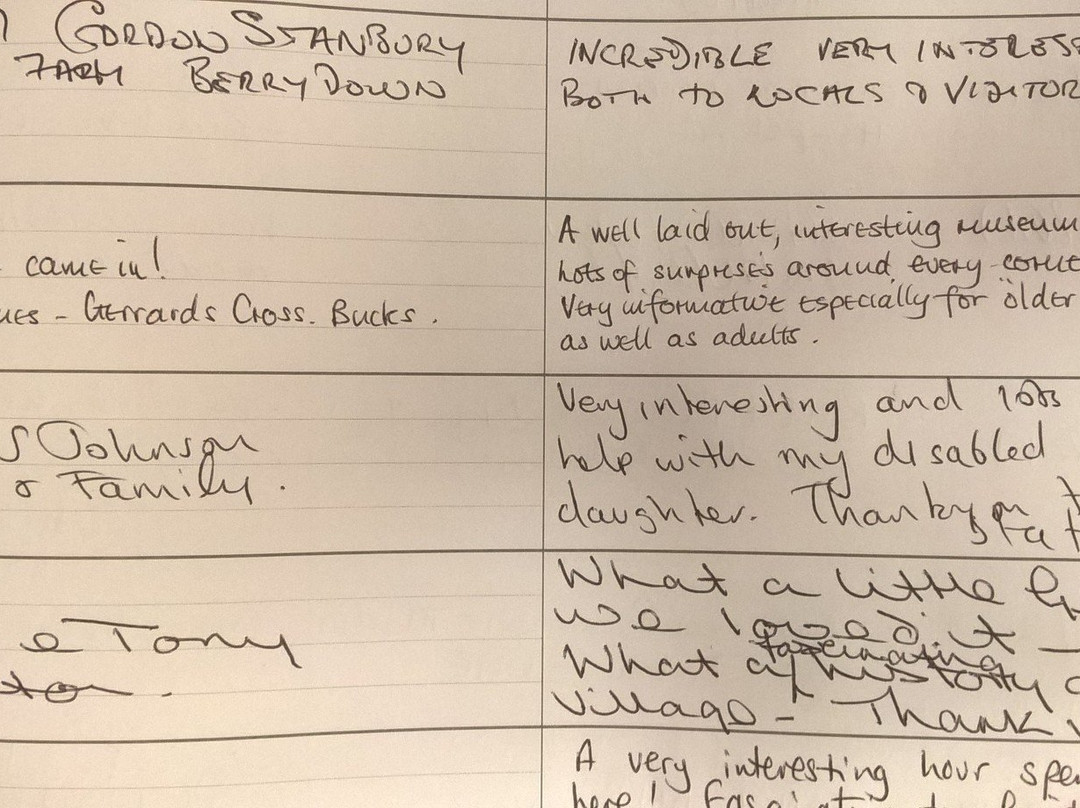 GORDON STANBURY
FARM BERRYDOWN
INCREDIBLE VERY
BOTH TO LOCALS & VISITOR
came in!
- Gerrards Cross. Bucks.
A well laid out, interesting museum
Lots of surprises around every
Very informative especially for older
as well as adults.
S Johnson
& Family.
Very interesting and lots
help with my disabled
daughter. Thankyou
& Tony
What a little
we loved it
fascinating
What a history
village - Thank
A very interesting hour
here!